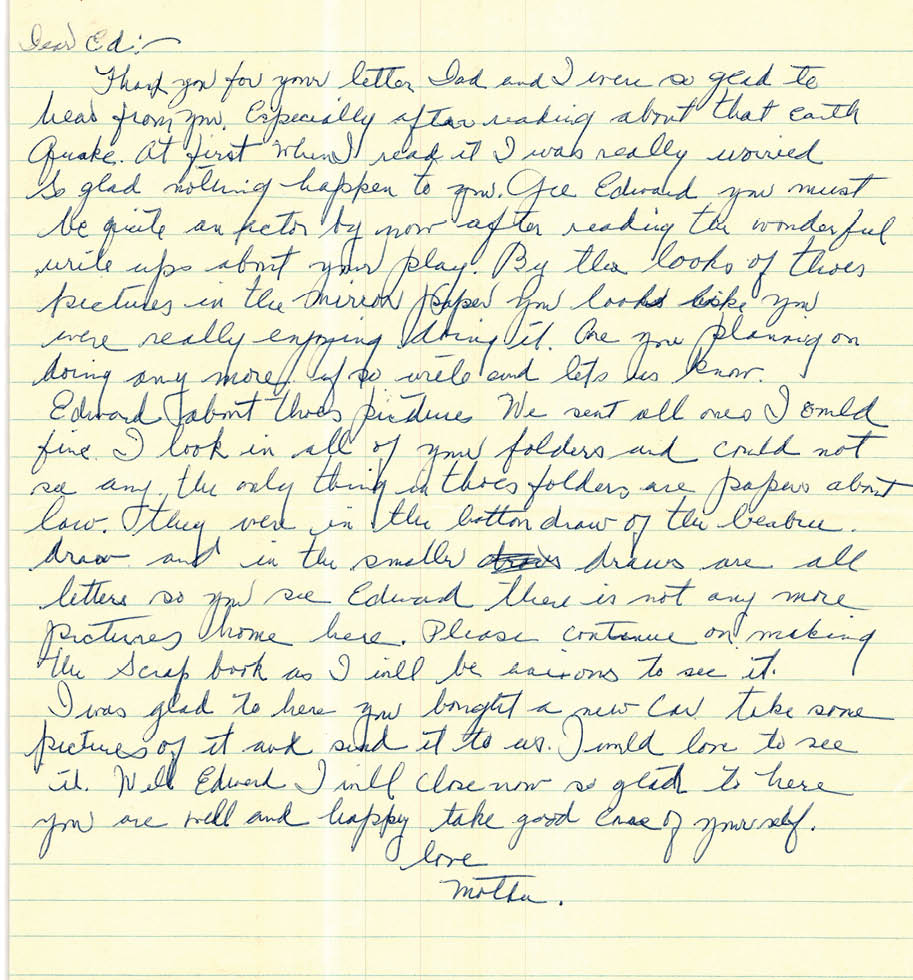 Dear Ed:—
Thank you for your letter Dad and I were so glad to
hear from you. Especially after reading about that earth
Quake. At first when I read it I was really worried
so glad nothing happen to you. Gee Edward you must
be quite an actor by now after reading the wonderful
write ups about your play. By the looks of thoes
pictures in the Mirror paper you looks like you
were really enjoying doing it. Are you plannig on
doing any more. if so write and lets us know.
Edward about thoes pictures We sent all ones I could
fine. I look in all of your folders and could not
see any, the only thing in thoes folders are papers about
law. They were in the botton draw of the
draw and in the smaller draws are all
letters so you see Edward there is not any more
pictures home here. Please contenue on making
the Scrap book as I will be to see it.
I was glad to here you bought a new Car. take some
pictures of it and send it to us. I would love to see
it. Well Edward I will close now so glad to here
you are well and happy take good care of yourself.
love
Mother.